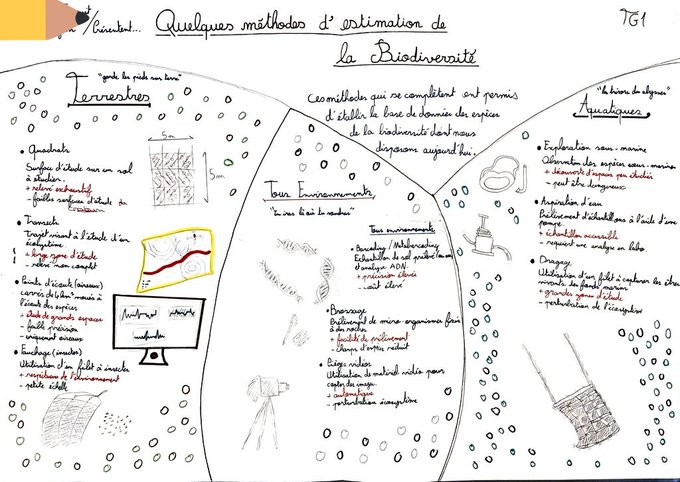 /Présentent...
Quelques méthodes d'estimation de
la Biodiversité
TG1
"garde les pieds sur terre"
Terrestres
Ces méthodes qui se complètent ont permis
d'établir la base de données des espèces
de la biodiversité dont nous
disposons aujourd'hui.
"le trésor des abysses"
Aquatiques
• Quadrats
Surface d'étude sur un sol
à étudier.
+ relevé exhaustif
- faibles surfaces d'étude
5m
5m
• Transects
Trajet visant à l'étude d'un
écosystème
+ large zone d'étude
- relevé non complet
• Points d'écoute (oiseaux)
carrés de 4 km² voués à
l'écoute des espèces
+ étude de grands espaces
- faible précision
- uniquement oiseaux
• Fauchage (insectes)
Utilisation d'un filet à insectes
+ respectueux de l'environnement
- petite échelle
Tous Environnements
"Tu iras là où tu voudras"
Tous environnements
• Barcoding / Metabarcoding
Echantillon de sol prélevé
et analyse ADN.
+ précision élevée
- coût élevé
• Brossage
Prélèvement de micro-organismes fixés
à des roches
+ facilité de prélèvement
- champs d'espèces réduit
• Pièges vidéos
Utilisation de matériel vidéo pour
capter des images.
+ automatique
- perturbation écosystème
• Exploration sous-marine
Observation des espèces sous-marine
+ découverte d'espèces peu étudiées
- peut être dangereux
• Aspiration d'eau
Prélèvement d'échantillons à l'aide d'une
pompe.
+ échantillon accessible
- requiert une analyse en labo.
• Dragage
Utilisation d'un filet à capturer les êtres
vivants des fonds marins
+ grandes zones d'étude
- perturbation de l'écosystème